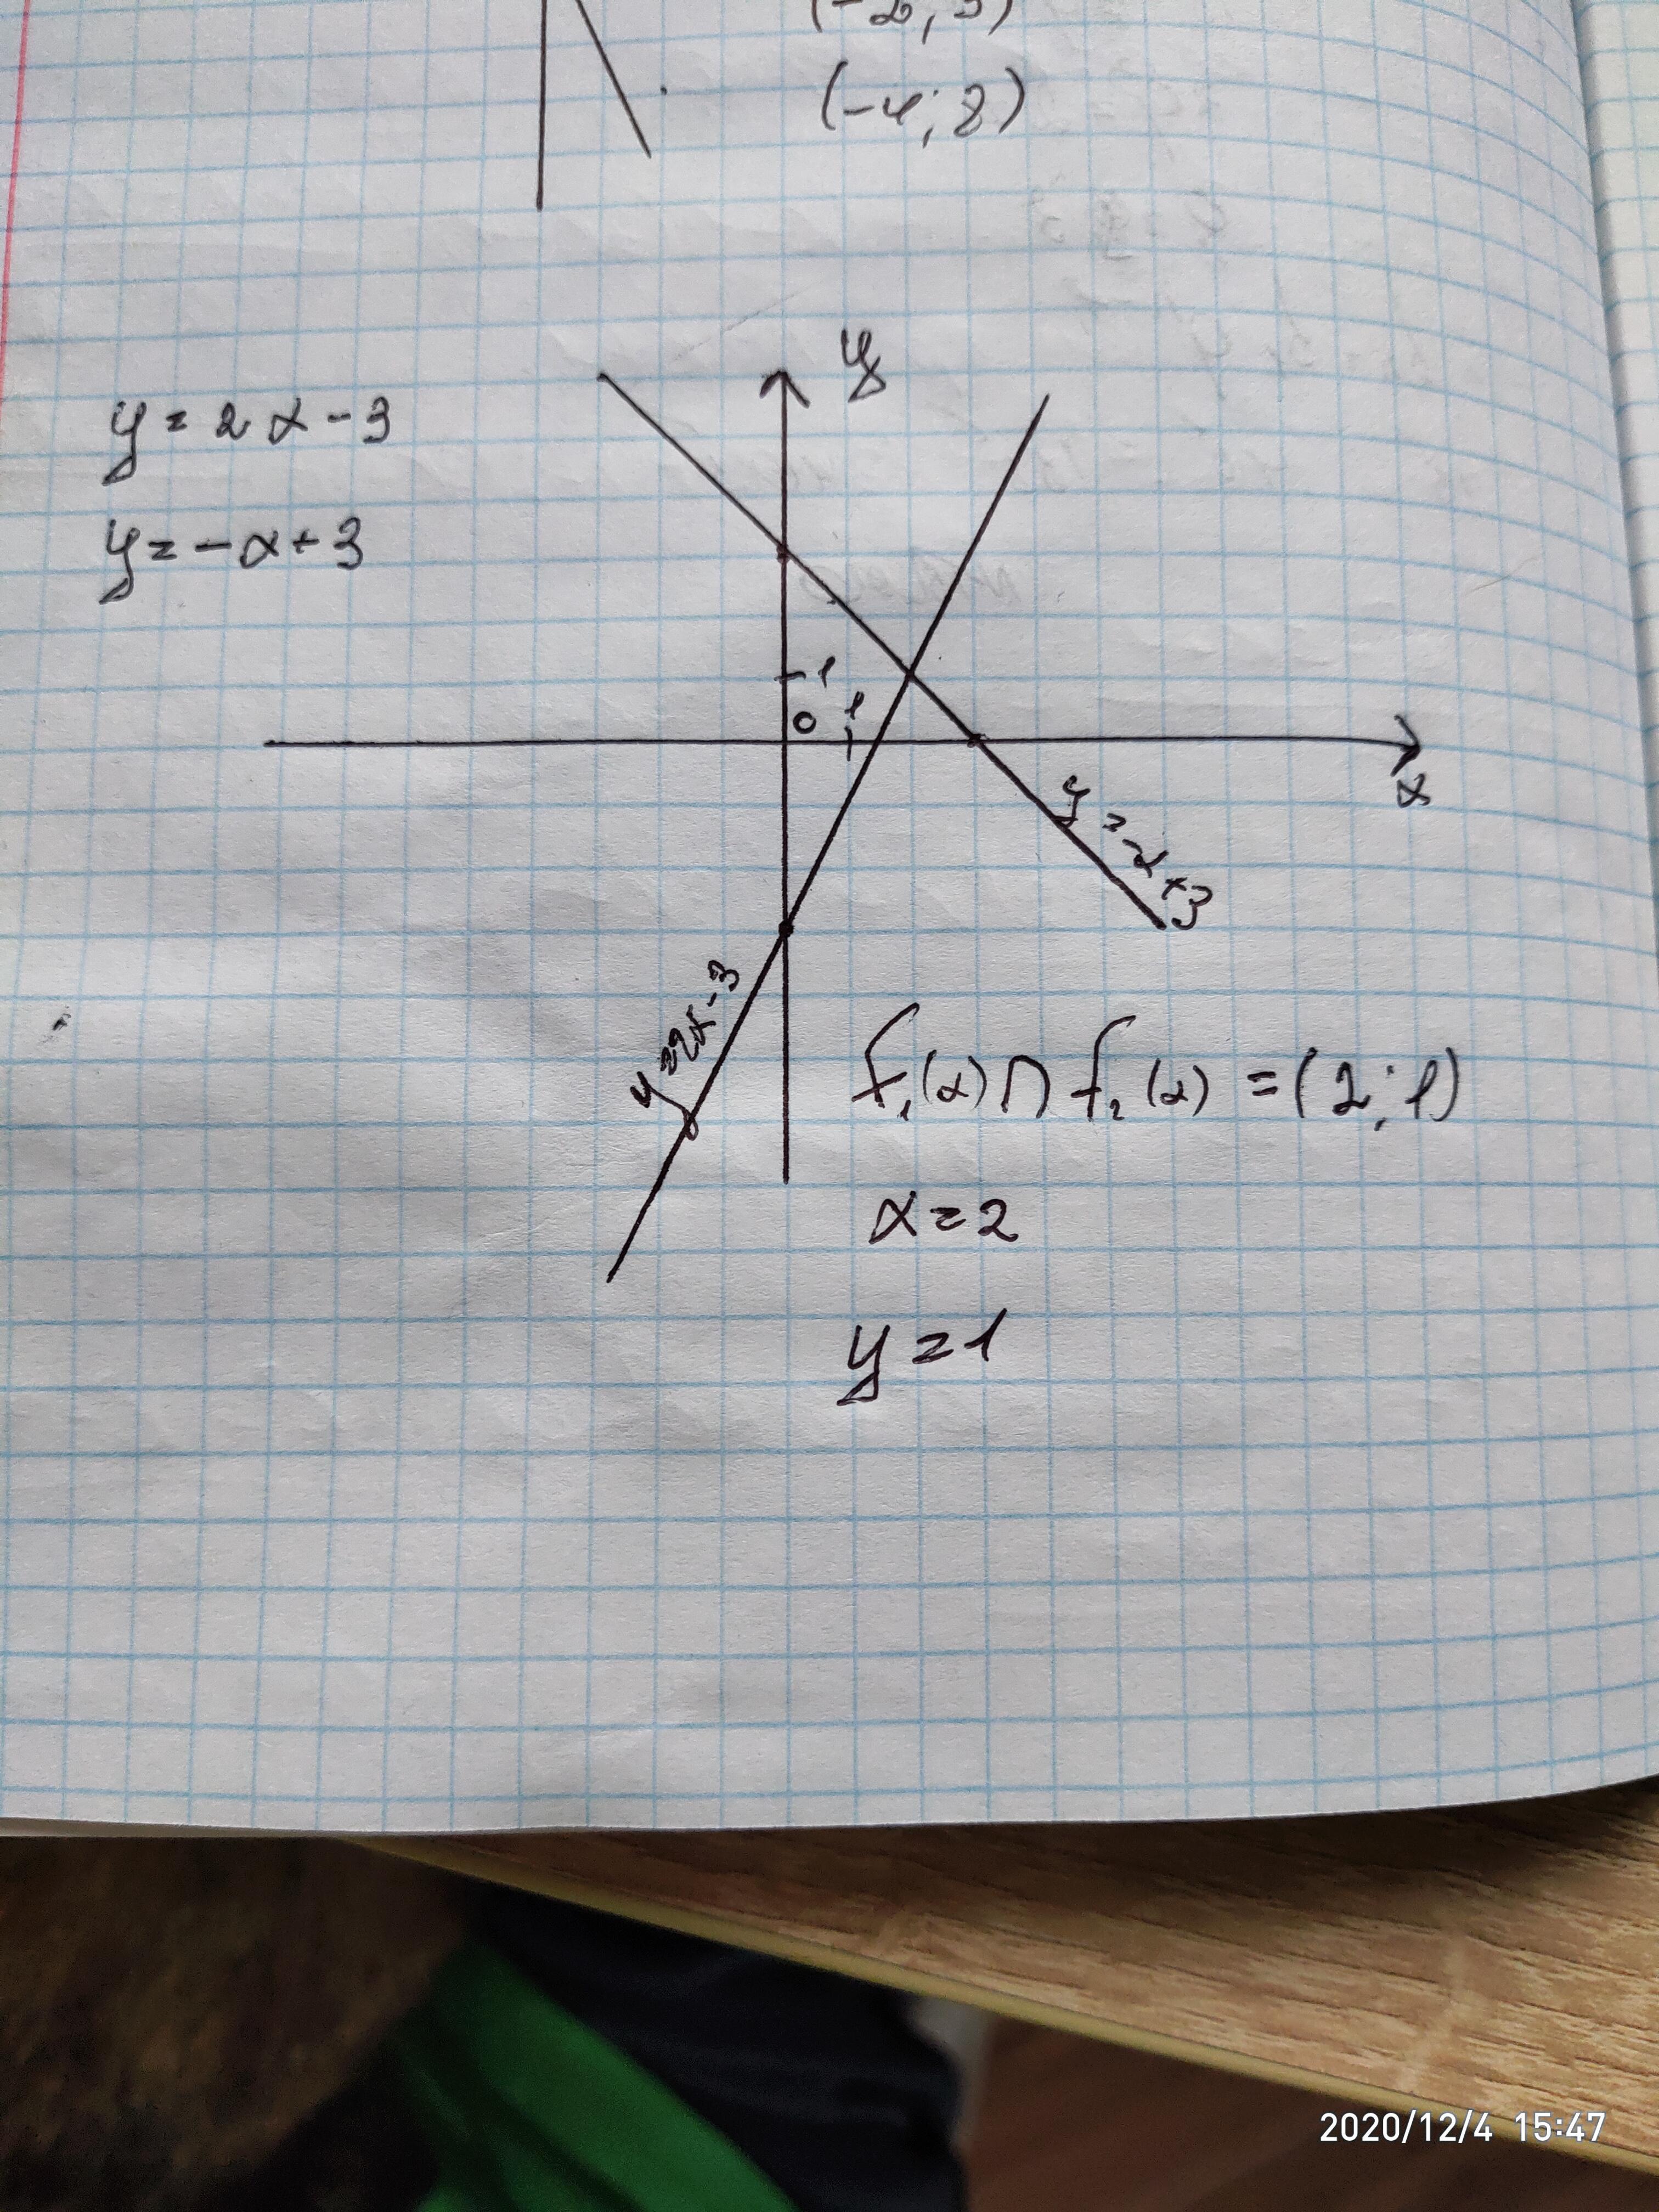 (-4; 8)
y
y = 2x - 3
y = -x + 3
1
0 1
x
y = -x + 3
y = 2x - 3
f₁(x) ∩ f₂(x) = (2; 1)
x = 2
y = 1
2020/12/4 15:47